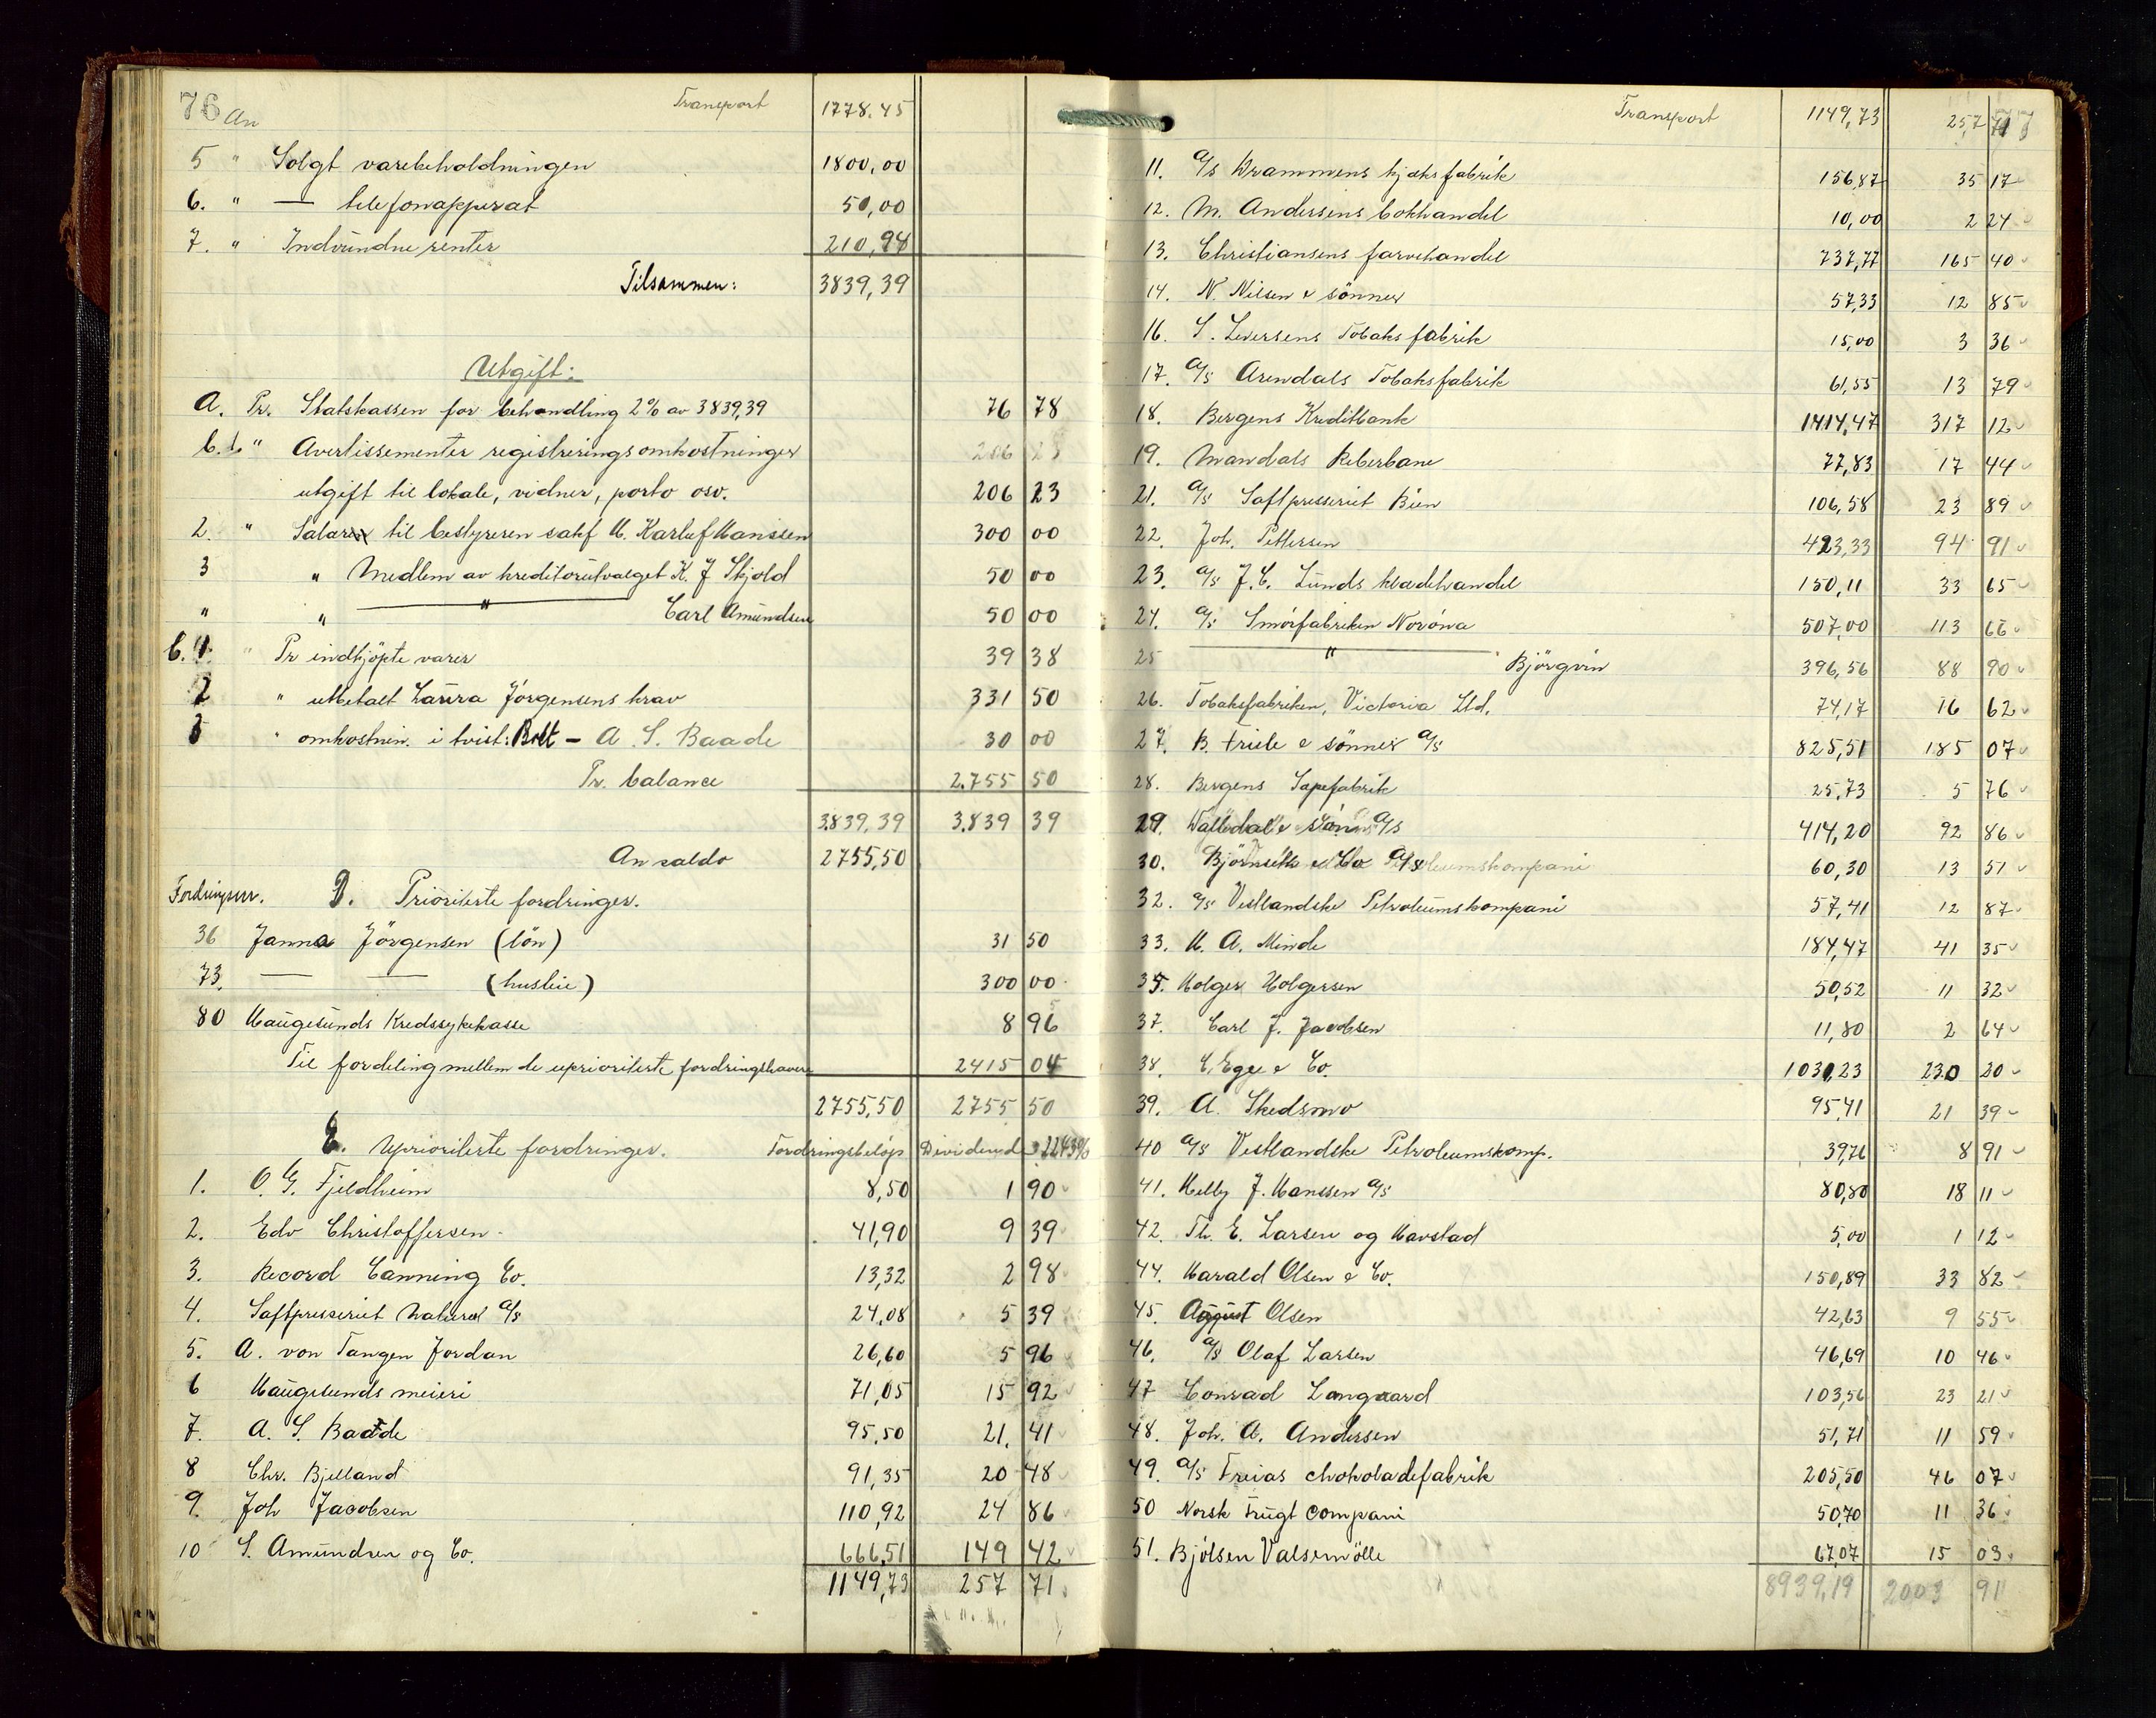 76 An Transport 1778.45
5 " Solgt varebeholdningen 1800,00
6. " — telefonapperat 50,00
7. " Indvundne renter 210,94
Tilsammen: 3839,39
Utgift:
A. Pr. Statskassen for behandling 2% av 3839,39 76 78
b.1 " Avertissementer registreringsomkostninger 206 23
utgift til lokale, vidner, porto osv. 206 23
2. " Salær til bestyreren sakf H. Karluf Hanssen 300 00
3 " Medlem av kreditorutvalget K. J. Skjold 50 00
" " — " — Carl Amundsen 50 00
C. 1. " Pr indkjöpte varer 39 38
2 " utbetalt Laura Jörgensens krav 331 50
3 " omkostnin. i tvist: Bott - A. S. Baade 30 00
Pr. balance 2.755 50
3.839,39 3.839 39
An saldo 2755,50
Fordringsnr. D. Prioriterte fordringer.
36 Janna Jörgensen (lön) 31 50
73. — — (husleie) 300 00
80 Haugesunds Kredssykekasse 8 96
Til fordeling mellem de uprioriterte fordringshavere 2415 04
2755,50 2755 50
E. Uprioriterte fordringer. Fordringsbelöp Dividend 22,43%
1. O. G. Fjeldheim 8,50 1 90
2. Edv Christoffersen 41,90 9 39
3. Record Canning Co. 13,32 2 98
4. Saftpresseriet Naturel A/S 24,08 5 39
5. A. von Tangen Jordan 26,60 5 96
6 Haugesunds meieri 71,05 15 92
7. A. S. Baade 95,50 21. 41
8 Chr. Bjelland 91,35 20 48
9. Joh Jacobsen 110,92 24 86
10 S. Amundsen og Co. 666,51 149 42
1149,73 257 71
Transport 1149,73 257 71 77
11. A/S Brammens kjæksfabrik 156,87 35 17
12. M. Andersens bokhandel 10,00 2 24
13. Christiansens farvehandel 737,77 165 40
14. N. Nilsen & sönner 57,33 12 85
16. S. Iversens Tobaksfabrik 15,00 3 36
17. A/S Arendals Tobaksfabrik 61,55 13 79
18. Bergens Kreditbank 1414,47 317 12
19. Mandals Reberbane 77,83 17 44
21. A/S Saftpresseriet Bien 106,58 23 89
22. Joh. Pettersen 423,33 94 91
23. A/S J. C. Lunds klædehandel 150,11 33 65
24. A/S Smörfabriken Noröna 507,00 113 66
25 — " — Björgvin 396,56 88 90
26. Tobaksfabriken, Victoria Ltd. 74,17 16 62
27. B. Friele & sönner A/S 825,51 185 07
28. Bergens Sæpefabrik 25,73 5 76
29. Wallendal & sön A/S 414,20 92 86
30. Björnseth & Co A/S 60,30 13 51
32. A/S Vestlandske Petroleumskompani 57,41 12 87
33. H. A. Minde 184,47 41 35
35. Holger Holgersen 50,52 11 32
37. Carl J. Jacobsen 11,80 2 64
38. E. Ege & Co. 1030,23 230 20
39. A. Skedsmo 95,41 21 39
40 A/S Vestlandske Petroleumskomp. 39,76 8 91
41. Helly J. Hanssen A/S 80,80 18 11
42. Th. E. Larsen og Havstad 5,00 1 12
44. Harald Olsen & Co. 150,89 33 82
45. August Olsen 42,63 9 55
46. A/S Olaf Larsen 46,69 10 46
47 Conrad Langaard 103,56 23 21
48. Joh. A. Andersen 51,71 11 59
49. A/S Freias chokoladefabrik 205,50 46 07
50 Norsk Frugt Compani 50,70 11 36
51. Bjölsen Valsemölle 67,07 15 03
8939,19 2003 91